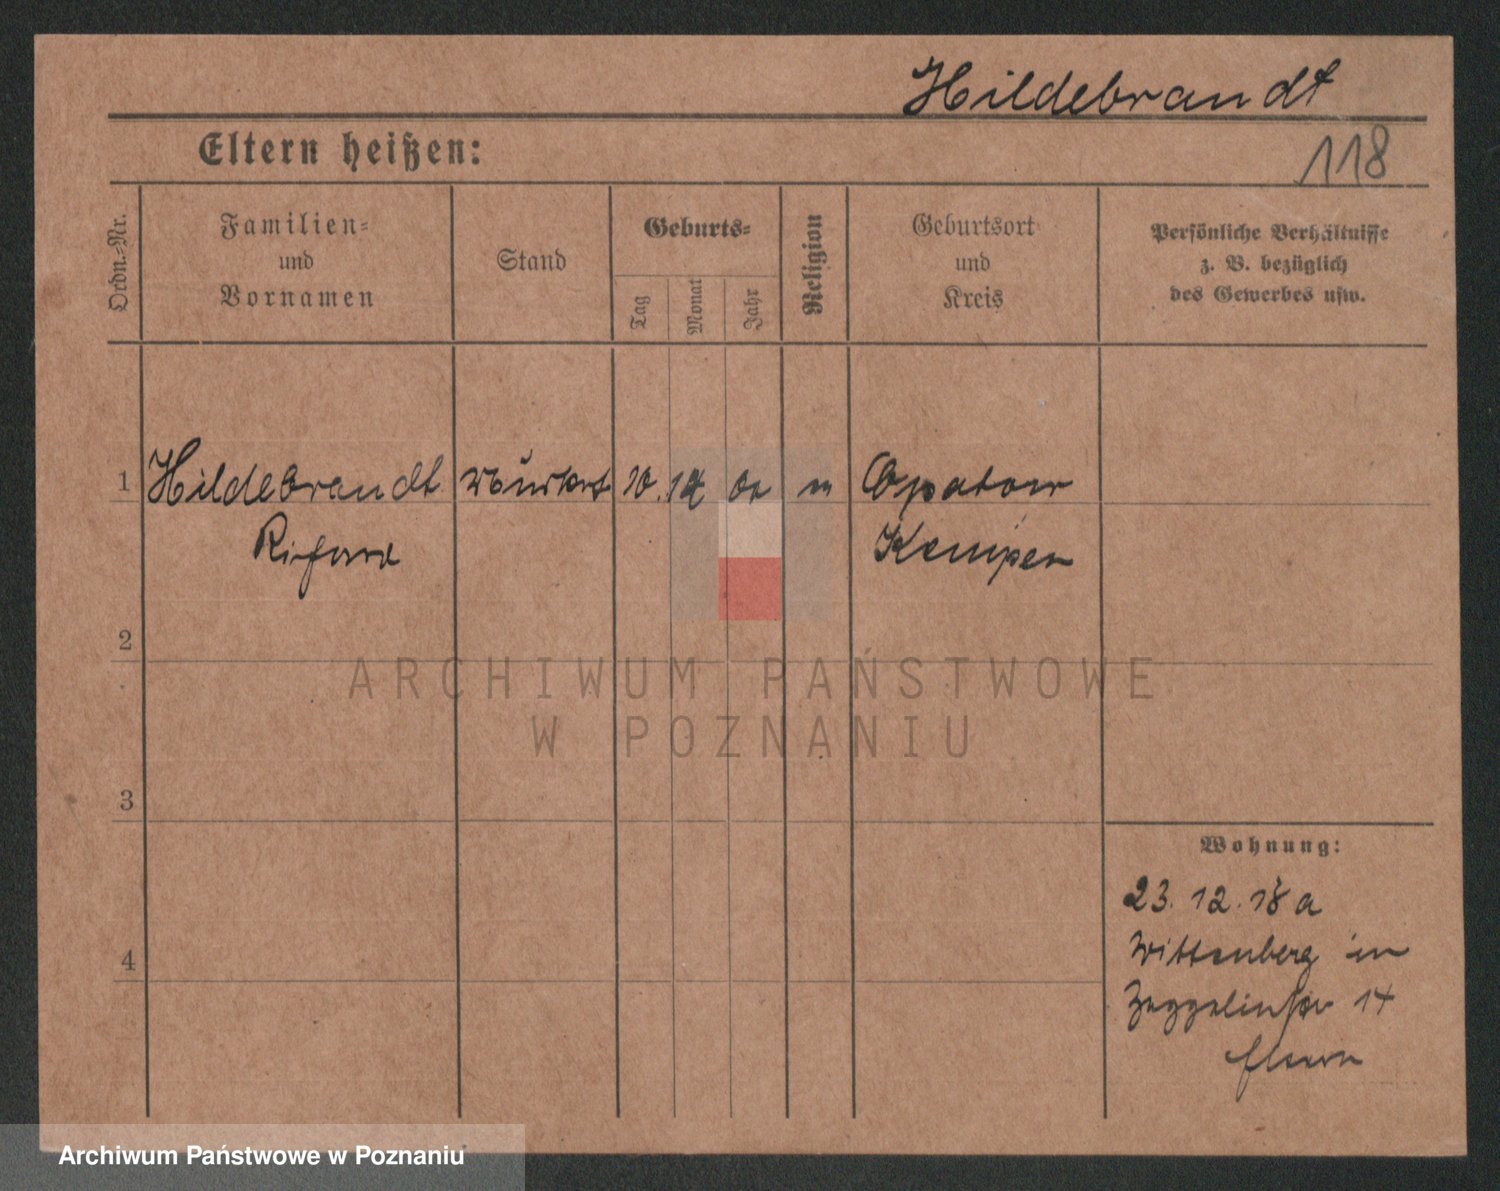 Hildebrandt
Eltern heißen:
118
Ordn.-Nr.
Familien-
und
Vornamen
Stand
Geburts-
Tag
Monat
Jahr
Religion
Geburtsort
und
Kreis
Persönliche Verhältnisse
z. B. bezüglich
des Gewerbes usw.
1 Hildebrandt 10. Opatow
Richard Kempen
2
ARCHIWUM PAŃSTWOWE
W POZNANIU
3
Wohnung:
23. 12. 18 a
4
Wittenberg in
14
Eltern
Archiwum Państwowe w Poznaniu